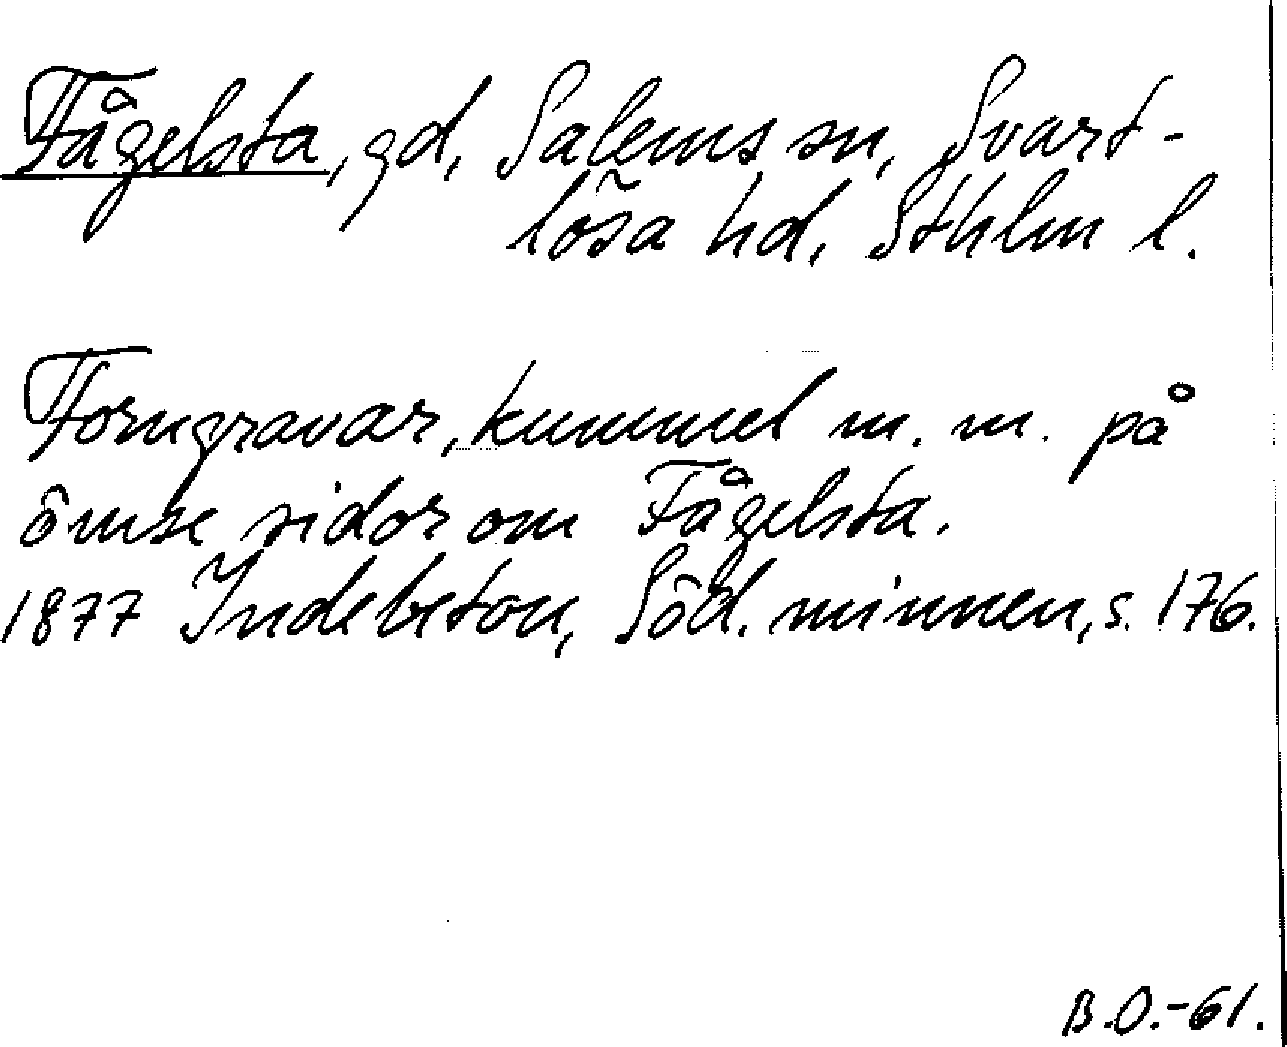 Fågelsta, gd, Salems sn, Svart-
lösa hd, Sthlm l.
Forngravar, kummel m. m. på
ömse sidor om Fågelsta.
1877 Indebetou, Söd. minnen, s. 176.
B.O.-61.